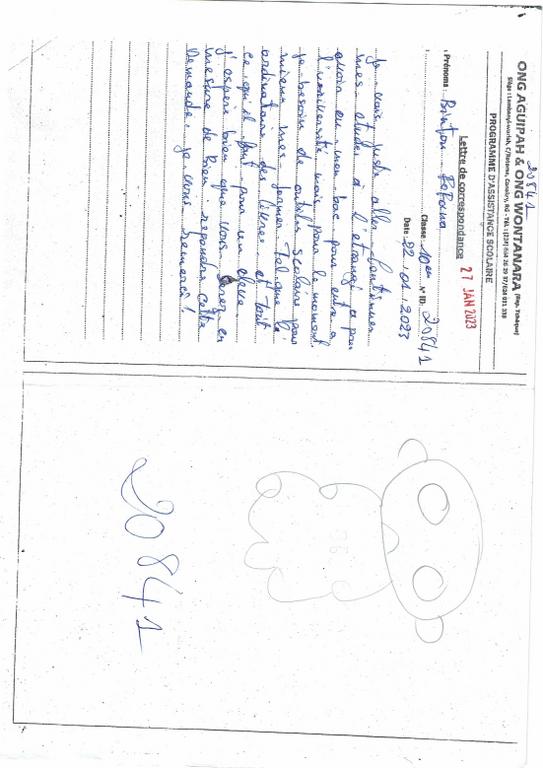 20841
ONG AGUIPAH & ONG WONTANARA (Rép. Tchèque)
PROGRAMME D'ASSISTANCE SCOLAIRE
Lettre de correspondance 27 JAN 2023
Prénoms : Bintou
Classe : 10em N° ID: 20841
Date : 22.01.2023
je vais juste aller continuer
mes etudes à l'etrangé a pres
avoir eu mon bac pour entre a
l'université mais pour le moment
je besoin de outils scolaire pour
mieux mes former tel que le
ordinataire des livres et tout
ce qu'il faut pour un eleve
j'espere bien que vous serez en
mesure de bien repondre cette
Demande, je vous remerci !
20841